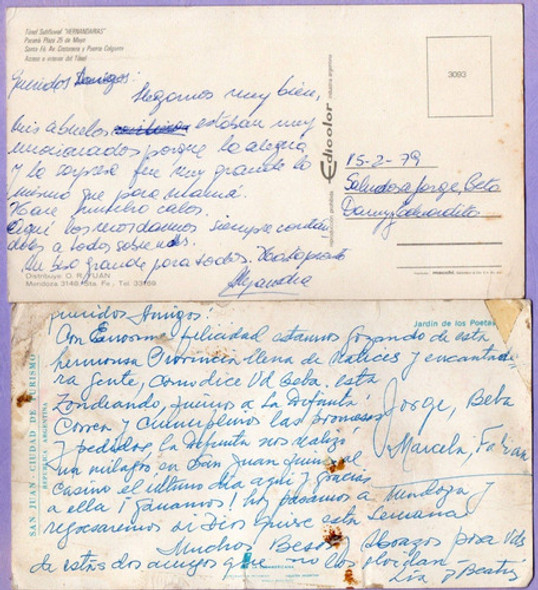 Túnel Subfluvial "HERNANDARIAS"
Paraná Plaza 25 de Mayo
Santa Fé, Av. Costanera y Puente Colgante
Acceso a ambos del Túnel
Queridos Amigos:
Llegamos muy bien,
mis abuelos estaban muy
emocionados porque la alegria
y la sorpresa fue muy grande lo
mismo que para mamá.
Hace mucho calor.
Aquí los recordamos siempre
a todos
Un beso grande para todos. Hasta pronto
Alejandra
Distribuyo O. R. YUAN
Mendoza 3148. Sta. Fe, Tel. 33169
Edicolor
industria argentina
reproducción prohibida
3093
15-2-79
Saludos a Jorge, Beba
Danny
Queridos Amigos:
Con Enorme felicidad estamos gozando de esta
hermosa Provincia llena de Matices y encantade
ra gente, como dice Vd Beba. esta
zondeando, fuimos a La Difunta
Correa y cumplimos las promesas
y pedidos, La Difunta nos realizó
un milagro en San Juan fuimos al
casino el ultimo dia aqui y gracias
a ella ¡Ganamos! hoy pasamos a Mendoza y
regresaremos si Dios quiere esta Semana
Muchos Besos y Abrazos para Vds
de estos dos amigos que no los olvidan
Jardín de los Poetas
Jorge, Beba
Marcela, Fabian
SAN JUAN CIUDAD DE TURISMO
REPUBLICA ARGENTINA